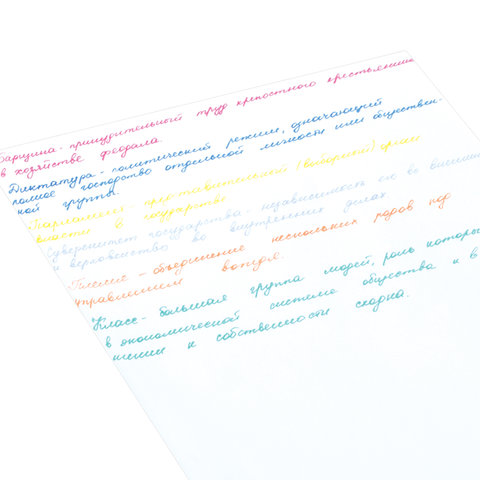 Барщина - принудительный труд крепостного крестьянина
в хозяйстве феодала.
Диктатура - политический режим, означающий
полное господство отдельной личности или обществен-
ной группы.
Парламент представительный (выборный) орган
власти в государстве
Суверенитет государства - независимость его во внешних
и верховенство во внутренних делах
Племя - объединение нескольких родов под
управлением вождя.
Класс - большая группа людей, роль которы
в экономической системе общества и в
шении к собственности сходна.